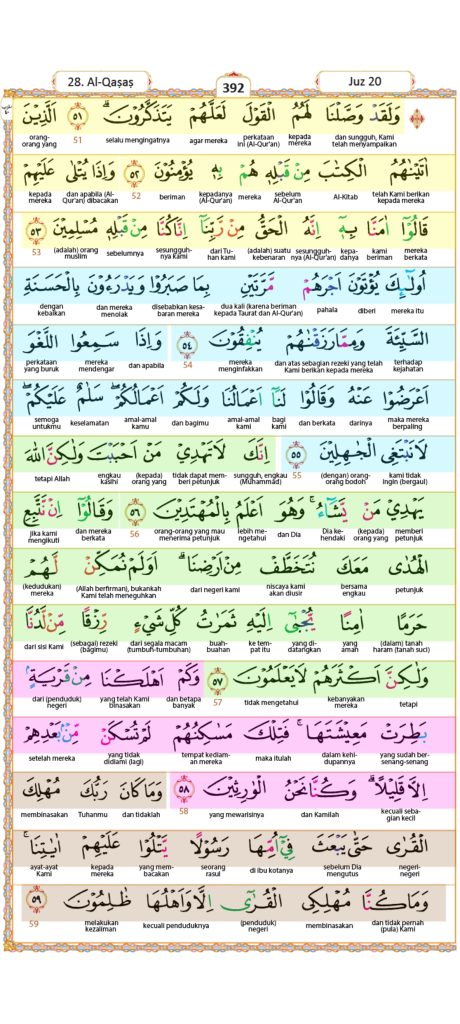 28. Al-Qaṣaṣ 392 Juz 20
وَلَقَدْ وَصَّلْنَا لَهُمُ الْقَوْلَ لَعَلَّهُمْ يَتَذَكَّرُوْنَ ۗ ٥١ اَلَّذِيْنَ
dan sungguh, Kami telah menyampaikan kepada mereka perkataan ini (Al-Qur'an) agar mereka selalu mengingatnya 51 orang-orang yang
اٰتَيْنٰهُمُ الْكِتٰبَ مِنْ قَبْلِهٖ هُمْ بِهٖ يُؤْمِنُوْنَ ٥٢ وَاِذَا يُتْلٰى عَلَيْهِمْ
telah Kami berikan kepada mereka Al-Kitab sebelum Al-Qur'an mereka kepadanya (Al-Qur'an) beriman 52 dan apabila (Al-Qur'an) dibacakan kepada mereka
قَالُوْٓا اٰمَنَّا بِهٖٓ اِنَّهُ الْحَقُّ مِنْ رَّبِّنَآ اِنَّا كُنَّا مِنْ قَبْلِهٖ مُسْلِمِيْنَ ٥٣
mereka berkata kami beriman kepadanya sesungguhnya (Al-Qur'an) (adalah) suatu kebenaran dari Tuhan kami sesungguhnya Kami sebelumnya (adalah) orang muslim 53
اُولٰۤىِٕكَ يُؤْتَوْنَ اَجْرَهُمْ مَّرَّتَيْنِ بِمَا صَبَرُوْا وَيَدْرَءُوْنَ بِالْحَسَنَةِ
mereka itu diberi pahala dua kali (karena beriman kepada Taurat dan Al-Qur'an) disebabkan kesabaran mereka dan mereka menolak dengan kebaikan
السَّيِّئَةَ وَمِمَّا رَزَقْنٰهُمْ يُنْفِقُوْنَ ٥٤ وَاِذَا سَمِعُوا اللَّغْوَ
terhadap kejahatan dan atas sebagian rezeki yang telah Kami berikan kepada mereka mereka menginfakkan 54 dan apabila mereka mendengar perkataan yang buruk
اَعْرَضُوْا عَنْهُ وَقَالُوْا لَنَآ اَعْمَالُنَا وَلَكُمْ اَعْمَالُكُمْ ۖ سَلٰمٌ عَلَيْكُمْ ۖ
maka mereka berpaling darinya dan berkata bagi kami amal-amal kami dan bagimu amal-amal kamu keselamatan semoga untukmu
لَا نَبْتَغِى الْجٰهِلِيْنَ ٥٥ اِنَّكَ لَا تَهْدِيْ مَنْ اَحْبَبْتَ وَلٰكِنَّ اللّٰهَ
kami tidak ingin (bergaul) (dengan) orang-orang bodoh 55 sungguh, engkau (Muhammad) tidak dapat memberi petunjuk (kepada) orang yang engkau kasihi tetapi Allah
يَهْدِيْ مَنْ يَّشَاۤءُ ۚ وَهُوَ اَعْلَمُ بِالْمُهْتَدِيْنَ ٥٦ وَقَالُوْٓا اِنْ نَّتَّبِعِ
memberi petunjuk (kepada) orang yang Dia kehendaki dan Dia lebih mengetahui orang-orang yang mau menerima petunjuk 56 dan mereka berkata jika kami mengikuti
الْهُدٰى مَعَكَ نُتَخَطَّفْ مِنْ اَرْضِنَا ۗ اَوَلَمْ نُمَكِّنْ لَّهُمْ
petunjuk bersama engkau niscaya kami akan diusir dari negeri kami (Allah berfirman), bukankah Kami telah meneguhkan (kedudukan) mereka
حَرَمًا اٰمِنًا يُّجْبٰٓى اِلَيْهِ ثَمَرٰتُ كُلِّ شَيْءٍ رِّزْقًا مِّنْ لَّدُنَّا
(dalam) tanah haram (tanah suci) yang aman yang didatangkan ke tempat itu buah-buahan dari segala macam (tumbuh-tumbuhan) (sebagai) rezeki (bagimu) dari sisi Kami
وَلٰكِنَّ اَكْثَرَهُمْ لَا يَعْلَمُوْنَ ٥٧ وَكَمْ اَهْلَكْنَا مِنْ قَرْيَةٍ ۢ
tetapi kebanyakan mereka tidak mengetahui 57 dan betapa banyak yang telah Kami binasakan dari (penduduk) negeri
بَطِرَتْ مَعِيْشَتَهَا ۚ فَتِلْكَ مَسٰكِنُهُمْ لَمْ تُسْكَنْ مِّنْۢ بَعْدِهِمْ
yang sudah bersenang-senang dalam kehidupannya maka itulah tempat kediaman mereka yang tidak didiami (lagi) setelah mereka
اِلَّا قَلِيْلًا ۗ وَكُنَّا نَحْنُ الْوٰرِثِيْنَ ٥٨ وَمَا كَانَ رَبُّكَ مُهْلِكَ
kecuali sebagian kecil dan Kamilah yang mewarisinya 58 dan tidaklah Tuhanmu membinasakan
الْقُرٰى حَتّٰى يَبْعَثَ فِيْٓ اُمِّهَا رَسُوْلًا يَّتْلُوْا عَلَيْهِمْ اٰيٰتِنَا ۚ
negeri-negeri sebelum Dia mengutus di ibu kotanya seorang rasul yang membacakan kepada mereka ayat-ayat Kami
وَمَا كُنَّا مُهْلِكِى الْقُرٰٓى اِلَّا وَاَهْلُهَا ظٰلِمُوْنَ ٥٩
dan tidak pernah (pula) Kami membinasakan (penduduk) negeri kecuali penduduknya melakukan kezaliman 59